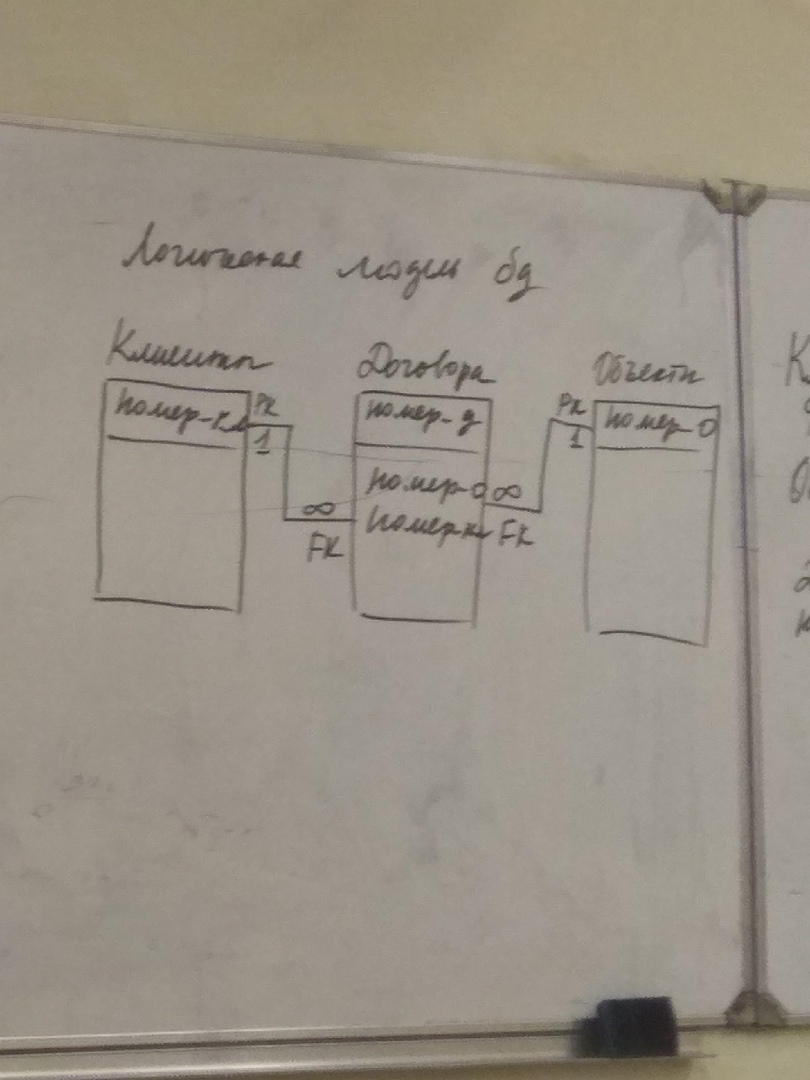 Логическая модель бд
Клиенты
номер-кл
PK
1
∞
FK
Договора
номер-д
номер-о
номеркл
∞
FK
PK
1
Объекты
номер-о
К
О